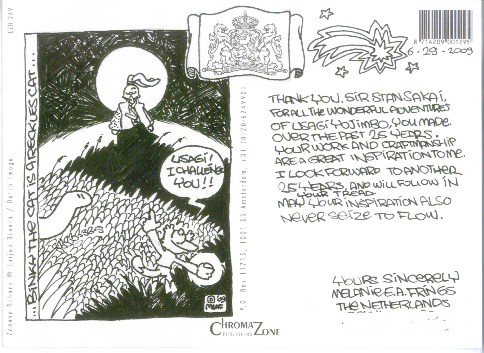 CZB 249
...BINKY THE CAT IS A RECKLES CAT...
USAGI!
I CHALLENGE
YOU!!
P.O. Box 11715, 1001 GS Amsterdam,
CHROMAZONE
PUBLISHING
8 714209 001295
6-29-2009
THANK YOU, SIR STAN SAKAI,
FOR ALL THE WONDERFUL ADVENTURES
OF USAGI YOJIMBO, YOU MADE.
OVER THE PAST 25 YEARS.
YOUR WORK AND CRAFTMANSHIP
ARE A GREAT INSPIRATION TO ME.
I LOOK FORWARD TO ANOTHER
25 YEARS, AND WILL FOLLOW IN
YOUR TREAD.
MAY YOUR INSPIRATION ALSO
NEVER SEIZE TO FLOW.
YOURS SINCERELY
MELANIE E.A. FRINGS
THE NETHERLANDS